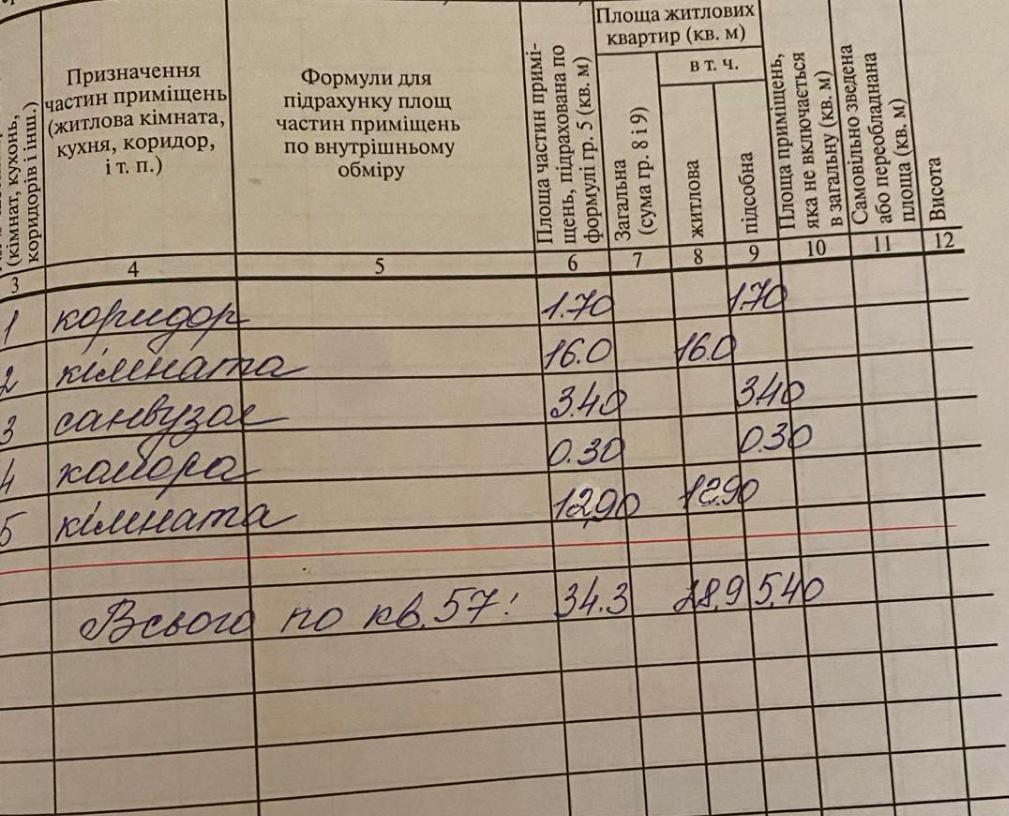 (кімнат, кухонь,
коридорів і інш.)
Призначення
частин приміщень
(житлова кімната,
кухня, коридор,
і т. п.)
Формули для
підрахунку площ
частин приміщень
по внутрішньому
обміру
Площа частин примі-
щень, підрахована по
формулі гр. 5 (кв. м)
Площа житлових
квартир (кв. м)
Загальна
(сума гр. 8 і 9)
в т. ч.
житлова
підсобна
Площа приміщень,
яка не включається
в загальну (кв. м)
Самовільно зведена
або переобладнана
площа (кв. м)
Висота
3 4 5 6 7 8 9 10 11 12
1 коридор 1.70 1.70
2 кімната 16.0 16.0
3 санвузол 3.40 3.40
4 комора 0.30 0.30
5 кімната 12,90 12.90
Всього по кв. 57: 34.3 28,9 5,40